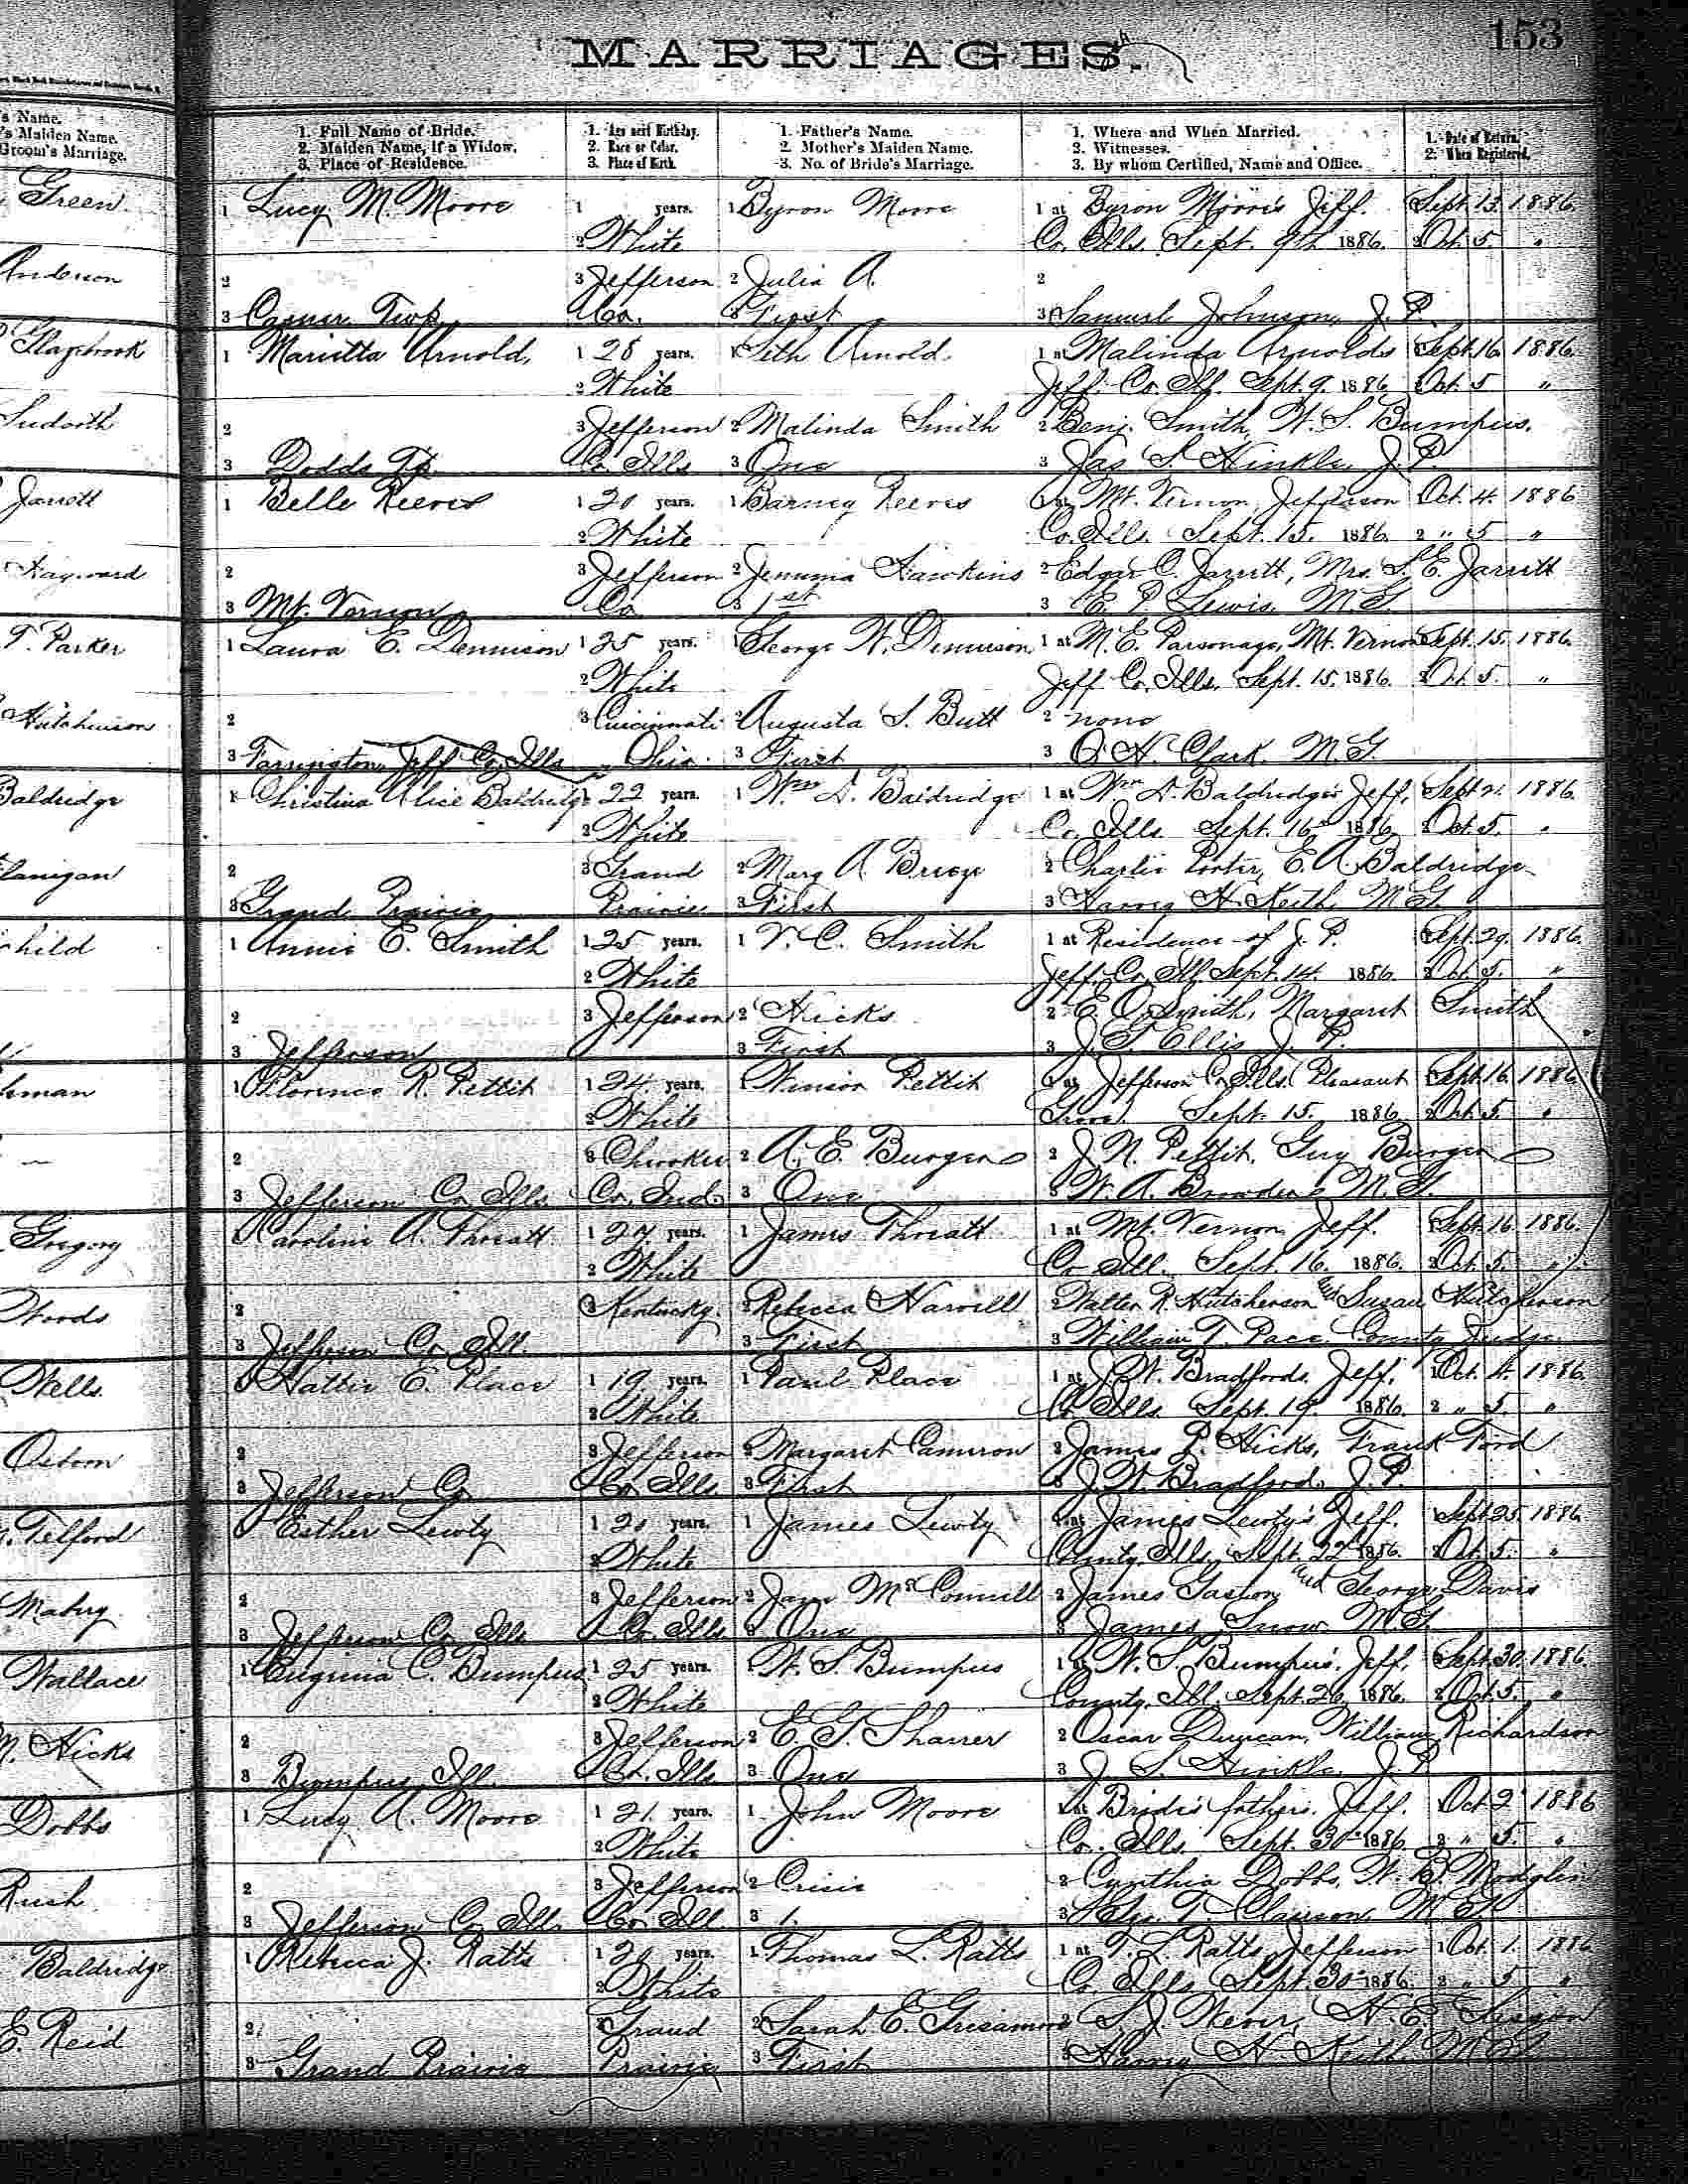 153
MARRIAGES.
s Name.
's Maiden Name.
Groom's Marriage.
1. Full Name of Bride.
2. Maiden Name, if a Widow.
3. Place of Residence.
1. Age next Birthday.
2. Race or Color.
3. Place of Birth.
1. Father's Name.
2. Mother's Maiden Name.
3. No. of Bride's Marriage.
1. Where and When Married.
2. Witnesses.
3. By whom Certified, Name and Office.
1. Date of Return.
2. When Registered.
Green. 1 Lucy M. Moore 1 years. 1 Byron Moore 1 at Byron Moore's Jeff. Sept. 13 1886.
2 White Co. Ills. Sept. 9th 1886. 2 Oct. 5 "
Anderson 2 3 Jefferson 2 Julia A. 2
3 Casner Twp Co. 3 First 3 Samuel Johnson, J. P.
Glazebrook 1 Marietta Arnold, 1 28 years. 1 Seth Arnold. 1 at Malinda Arnolds Sept. 16. 1886.
2 White Jeff. Co. Ill. Sept. 9. 1886 2 Oct. 5 "
Sudarth 2 3 Jefferson 2 Malinda Smith 2 Benj. Smith, W. S. Bumpus.
3 Dodds Tp. Co. Ills 3 One 3 Jas S. Hinkle, J. P.
Jarrett 1 Belle Reeves 1 20 years. 1 Barney Reeves 1 at Mt. Vernon, Jefferson Oct. 4. 1886
2 White Co. Ills. Sept. 15. 1886. 2 " 5 "
Hayward 2 3 Jefferson 2 Jemima Hawkins 2 Edgar C. Jarrett, Mrs. S. E. Jarrett
3 Mt. Vernon Co. 3 1st 3 E. P. Lewis, M.G.
T. Parker 1 Laura E. Dennison 1 25 years. 1 George W. Dennison 1 at M. E. Parsonage, Mt. Vernon Sept. 15. 1886.
2 White Jeff Co. Ills. Sept. 15. 1886. 2 Oct. 5. "
Hutchinson 2 3 Cincinnati 2 Augusta S. Butt 2 none
3 Farrington, Jeff Co. Ills Ohio. 3 First 3 O. H. Clark. M.G.
Baldridge 1 Christina Alice Baldridge 1 22 years. 1 Wm A. Baldridge 1 at Wm A. Baldridges Jeff. Sept 21. 1886.
2 White Co. Ills Sept. 16 1886 2 Oct. 5. "
Flanigan 2 3 Grand 2 Mary A Breeze 2 Charlie Porter, E. A. Baldridge
3 Grand Prairie Prairie 3 First 3 Harvey H. Keith, M.G.
child 1 Annie E. Smith 1 25 years. 1 V. C. Smith 1 at Residence of J. P. Sept. 29. 1886.
2 White Jeff. Co. Ill. Sept. 14. 1886. 2 Oct. 5. "
2 3 Jefferson 2 Hicks 2 E. O. Smith, Margaret Smith
3 Jefferson 3 First 3 J. T. Ellis J. P.
man 1 Florence R. Pettit 1 24 years. 1 Pettit 1 at Jefferson Co. Ills. Pleasant Sept. 16. 1886
2 White Grove. Sept. 15. 1886. 2 Oct. 5. "
2 3 Cherokee 2 A. E. Burgen 2 J. N. Pettit, Guy Burgen
3 Jefferson Co. Ills Co. Ind. 3 One 3 W. A. Browder M.G.
Gregory 1 Caroline A. Threatt 1 27 years. 1 James Threatt 1 at Mt. Vernon Jeff. Sept. 16. 1886.
2 White Co Ill. Sept. 16. 1886. 2 Oct. 5. "
Woods 2 3 Kentucky. 2 Rebecca Harvill 2 Walter R. Hutcherson and Susan Hutcherson
3 Jefferson Co. Ill. 3 First 3 William T. Pace. County Judge.
Wells 1 Hattie E. Place 1 19 years. 1 Paul Place 1 at J. W. Bradfords, Jeff. Oct. 4. 1886.
2 White Co. Ills. Sept. 19. 1886. 2 " 5. "
Osborn 2 3 Jefferson 2 Margaret Cameron 2 James P. Hicks, Frank Ford
3 Jefferson Co. Co. Ills 3 First 3 J. W. Bradford. J. P.
Telford 1 Esther Lewty 1 20 years. 1 James Lewty 1 at James Lewty's Jeff. Sept 25. 1886.
2 White County Ills, Sept. 22 1886. 2 Oct. 5. "
Mabry 2 3 Jefferson 2 Jane McConnell 2 James Gaston and George Davis
3 Jefferson Co. Ills Co. Ills 3 One 3 James Snow M.G.
Wallace 1 Eugenia C. Bumpus 1 25 years. 1 W. S. Bumpus 1 at W. S. Bumpus', Jeff. Sept. 30. 1886.
2 White County, Ill. Sept. 26 1886. 2 Oct. 5. "
M. Hicks 2 3 Jefferson 2 E. G. Sharrer 2 Oscar Duncan, William Richardson
3 Bumpus, Ill. Co. Ills 3 One 3 J. S. Hinkle, J. P.
Dobbs 1 Lucy A. Moore 1 21. years. 1 John Moore 1 at Bride's father's. Jeff. Oct. 2 1886
2 White Co. Ills. Sept. 30 1886 2 " 5. "
Rush 2 3 Jefferson 2 Crisis 2 Cynthia Dobbs, W. B. Modglin
3 Jefferson Co. Ills. Co. Ill 3 1. 3 T. Clawson, M.G.
Baldridge 1 Rebecca J. Ratts 1 20 years. 1 Thomas L. Ratts 1 at T. L. Ratts, Jefferson Oct. 1. 1886
2 White Co. Ills. Sept. 30 1886. 2 " 5 "
E. Reid 2 3 Grand 2 Sarah E. Grisamore 2 S. J. H. E. Sisson
3 Grand Prairie Prairie 3 First 3 Harvey H. Keith. M.G.